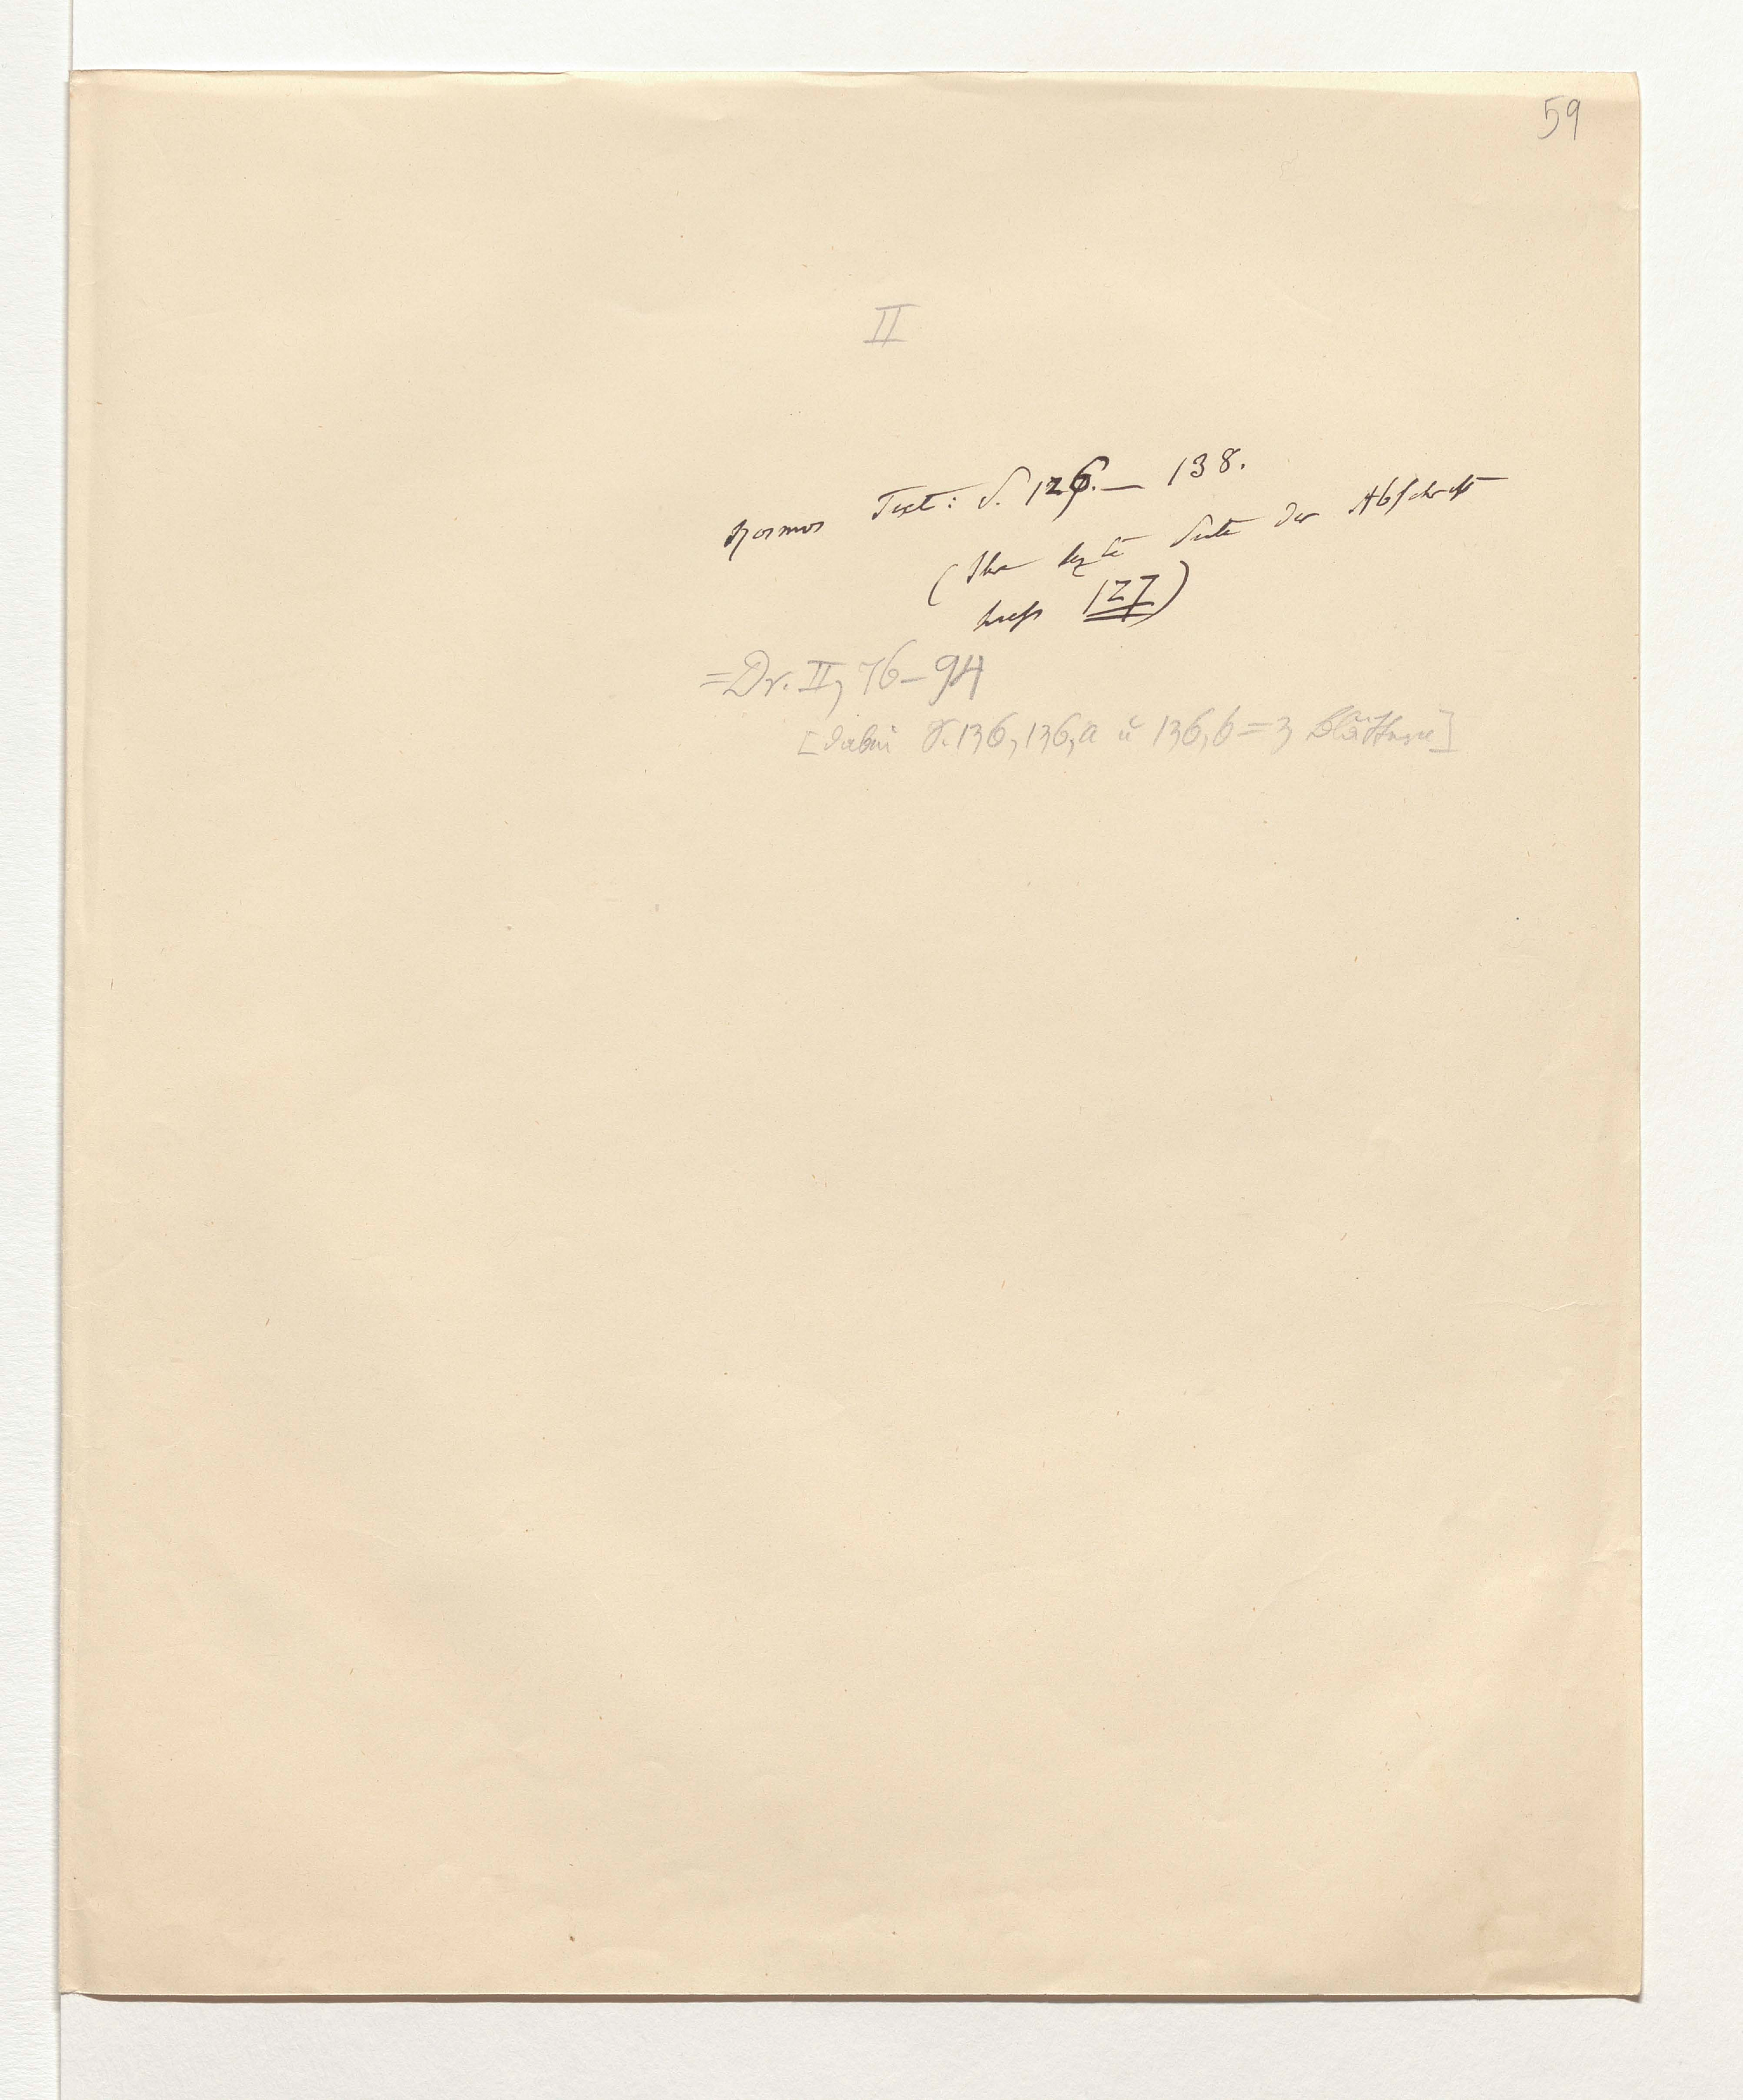 59
II
Kosmos Text: S. 126.— 138.
(Ihre lezte Seite der Abschrift
hiess 127)
=Dr. II, 76–94
[dabei S. 136, 136,a u 136,b = 3 Blätter]